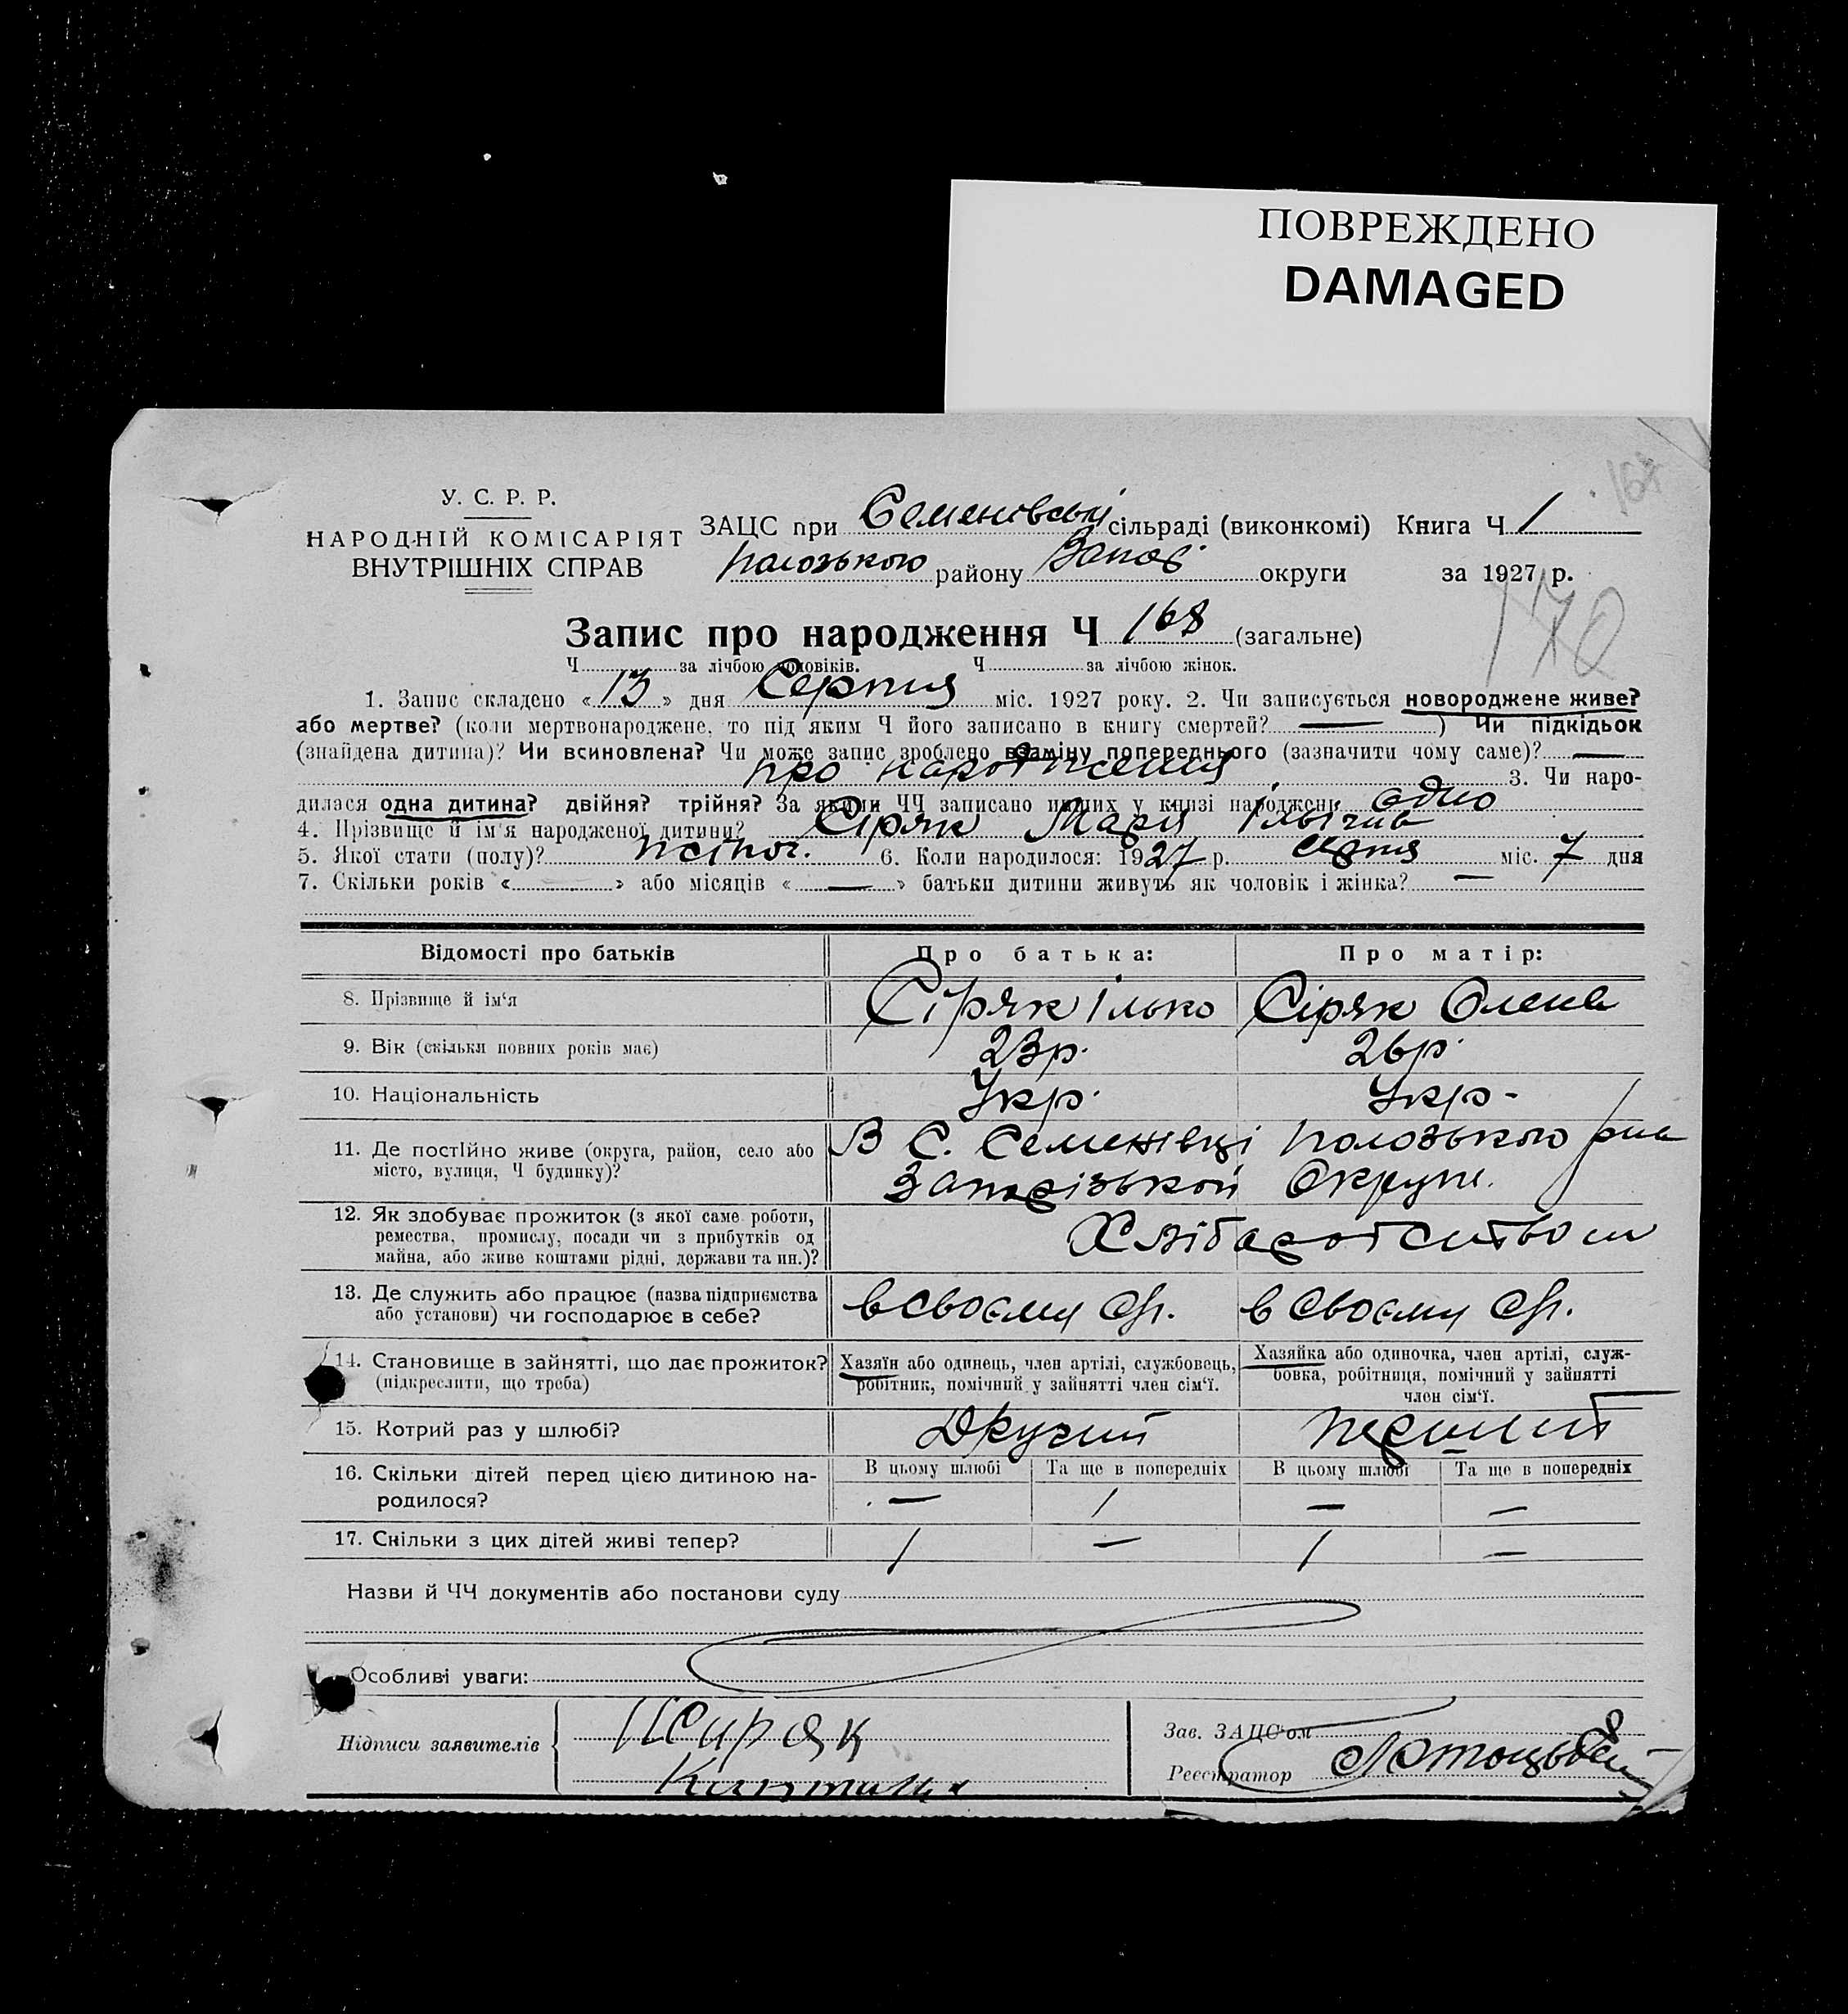 ПОВРЕЖДЕНО
DAMAGED
168
У. С. Р. Р.
НАРОДНІЙ КОМІСАРІЯТ
ВНУТРІШНІХ СПРАВ
ЗАЦС при Семенівській сільраді (виконкомі) Книга Ч 1
Полозького району Запор. округи за 1927 р.
170
Запис про народження Ч 168 (загальне)
Ч за лічбою чоловіків. Ч за лічбою жінок.
1. Запис складено « 13 » дня Серпня міс. 1927 року. 2. Чи записується новороджене живе?
або мертве? (коли мертвонароджене, то під яким Ч його записано в книгу смертей? — ) Чи підкідьок
(знайдена дитина)? Чи всиновлена? Чи може запис зроблено взаміну попереднього (зазначити чому саме)? —
про народження 3. Чи наро-
дилася одна дитина? двійня? трійня? За якими ЧЧ записано инших у книзі народжень одно
4. Прізвище й ім'я народженої дитини? Сіряк Марія
5. Якої стати (полу)? жіноч. 6. Коли народилося: 1927 р. серпня міс. 7 дня
7. Скільки років « » або місяців « — » батьки дитини живуть як чоловік і жінка? —
Відомості про батьків Про батька: Про матір:
8. Прізвище й ім'я Сіряк Ілько Сіряк Олена
9. Вік (скільки повних років має) 23р. 26р.
10. Національність Укр. Укр-
11. Де постійно живе (округа, район, село або В С. Семенівці Полозького р-на
місто, вулиця, Ч будинку)? Запорізькой Округи.
12. Як здобуває прожиток (з якої саме роботи,
ремества, промислу, посади чи з прибутків од
майна, або живе коштами рідні, держави та ин.)? Хліборобством
13. Де служить або працює (назва підприємства
або установи) чи господарює в себе? в своєму в своєму
14. Становище в зайнятті, що дає прожиток?
(підкреслити, що треба)
Хазяїн або одинець, член артілі, службовець,
робітник, помічний у зайнятті член сім'ї.
Хазяйка або одиночка, член артілі, служ-
бовка, робітниця, помічний у зайнятті
член сім'ї.
15. Котрий раз у шлюбі? Другий перший
16. Скільки дітей перед цією дитиною на-
родилося?
В цьому шлюбі Та ще в попередніх В цьому шлюбі Та ще в попередніх
— 1 — —
17. Скільки з цих дітей живі тепер? 1 — 1 —
Назви й ЧЧ документів або постанови суду
Особливі уваги:
Підписи заявителів
Зав. ЗАЦС'ом
Реєстратор